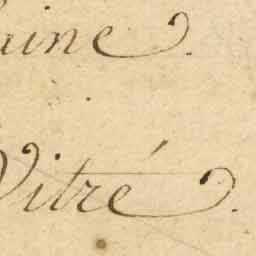 aine.
Vitré.